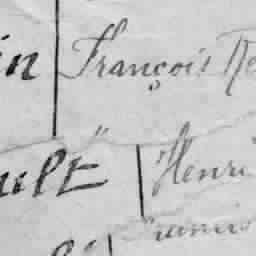 in François Re
ult Henri